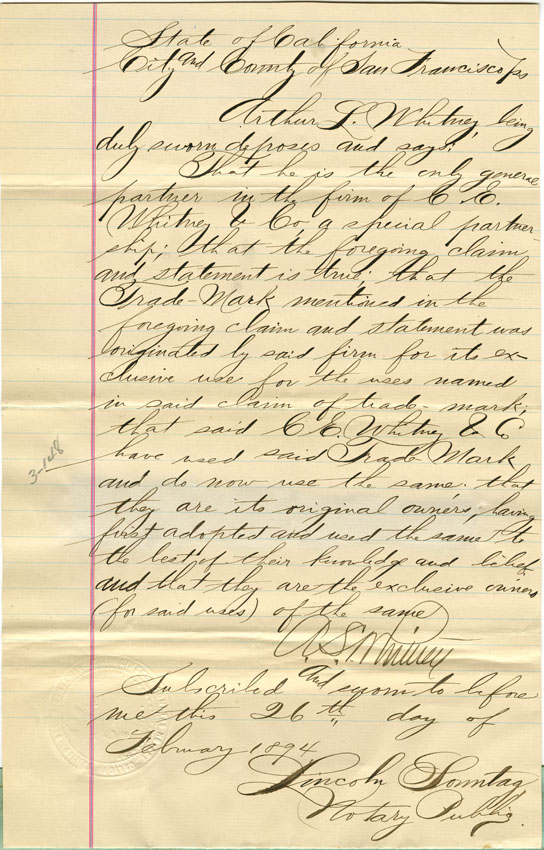 State of California
City and County of San Francisco } ss
Arthur L. Whitney, being
duly sworn deposes and says:
That he is the only general
partner in the firm of C. E.
Whitney & Co, a special partner-
ship; that the foregoing claim
and statement is true: that the
Trade-Mark mentioned in the
foregoing claim and statement was
originated by said firm for its ex-
clusive use for the uses named
in said claim of trade-mark;
that said C. E. Whitney & Co
have used said Trade Mark
3-148
and do now use the same: that
they are its original owners, having
first adopted and used the same to
the best of their knowledge and belief
and that they are the exclusive owners
(for said uses) of the same
A. L. Whitney
Subscribed and sworn to before
me this 26th day of
February 1894
Lincoln Sonntag
Notary Public.